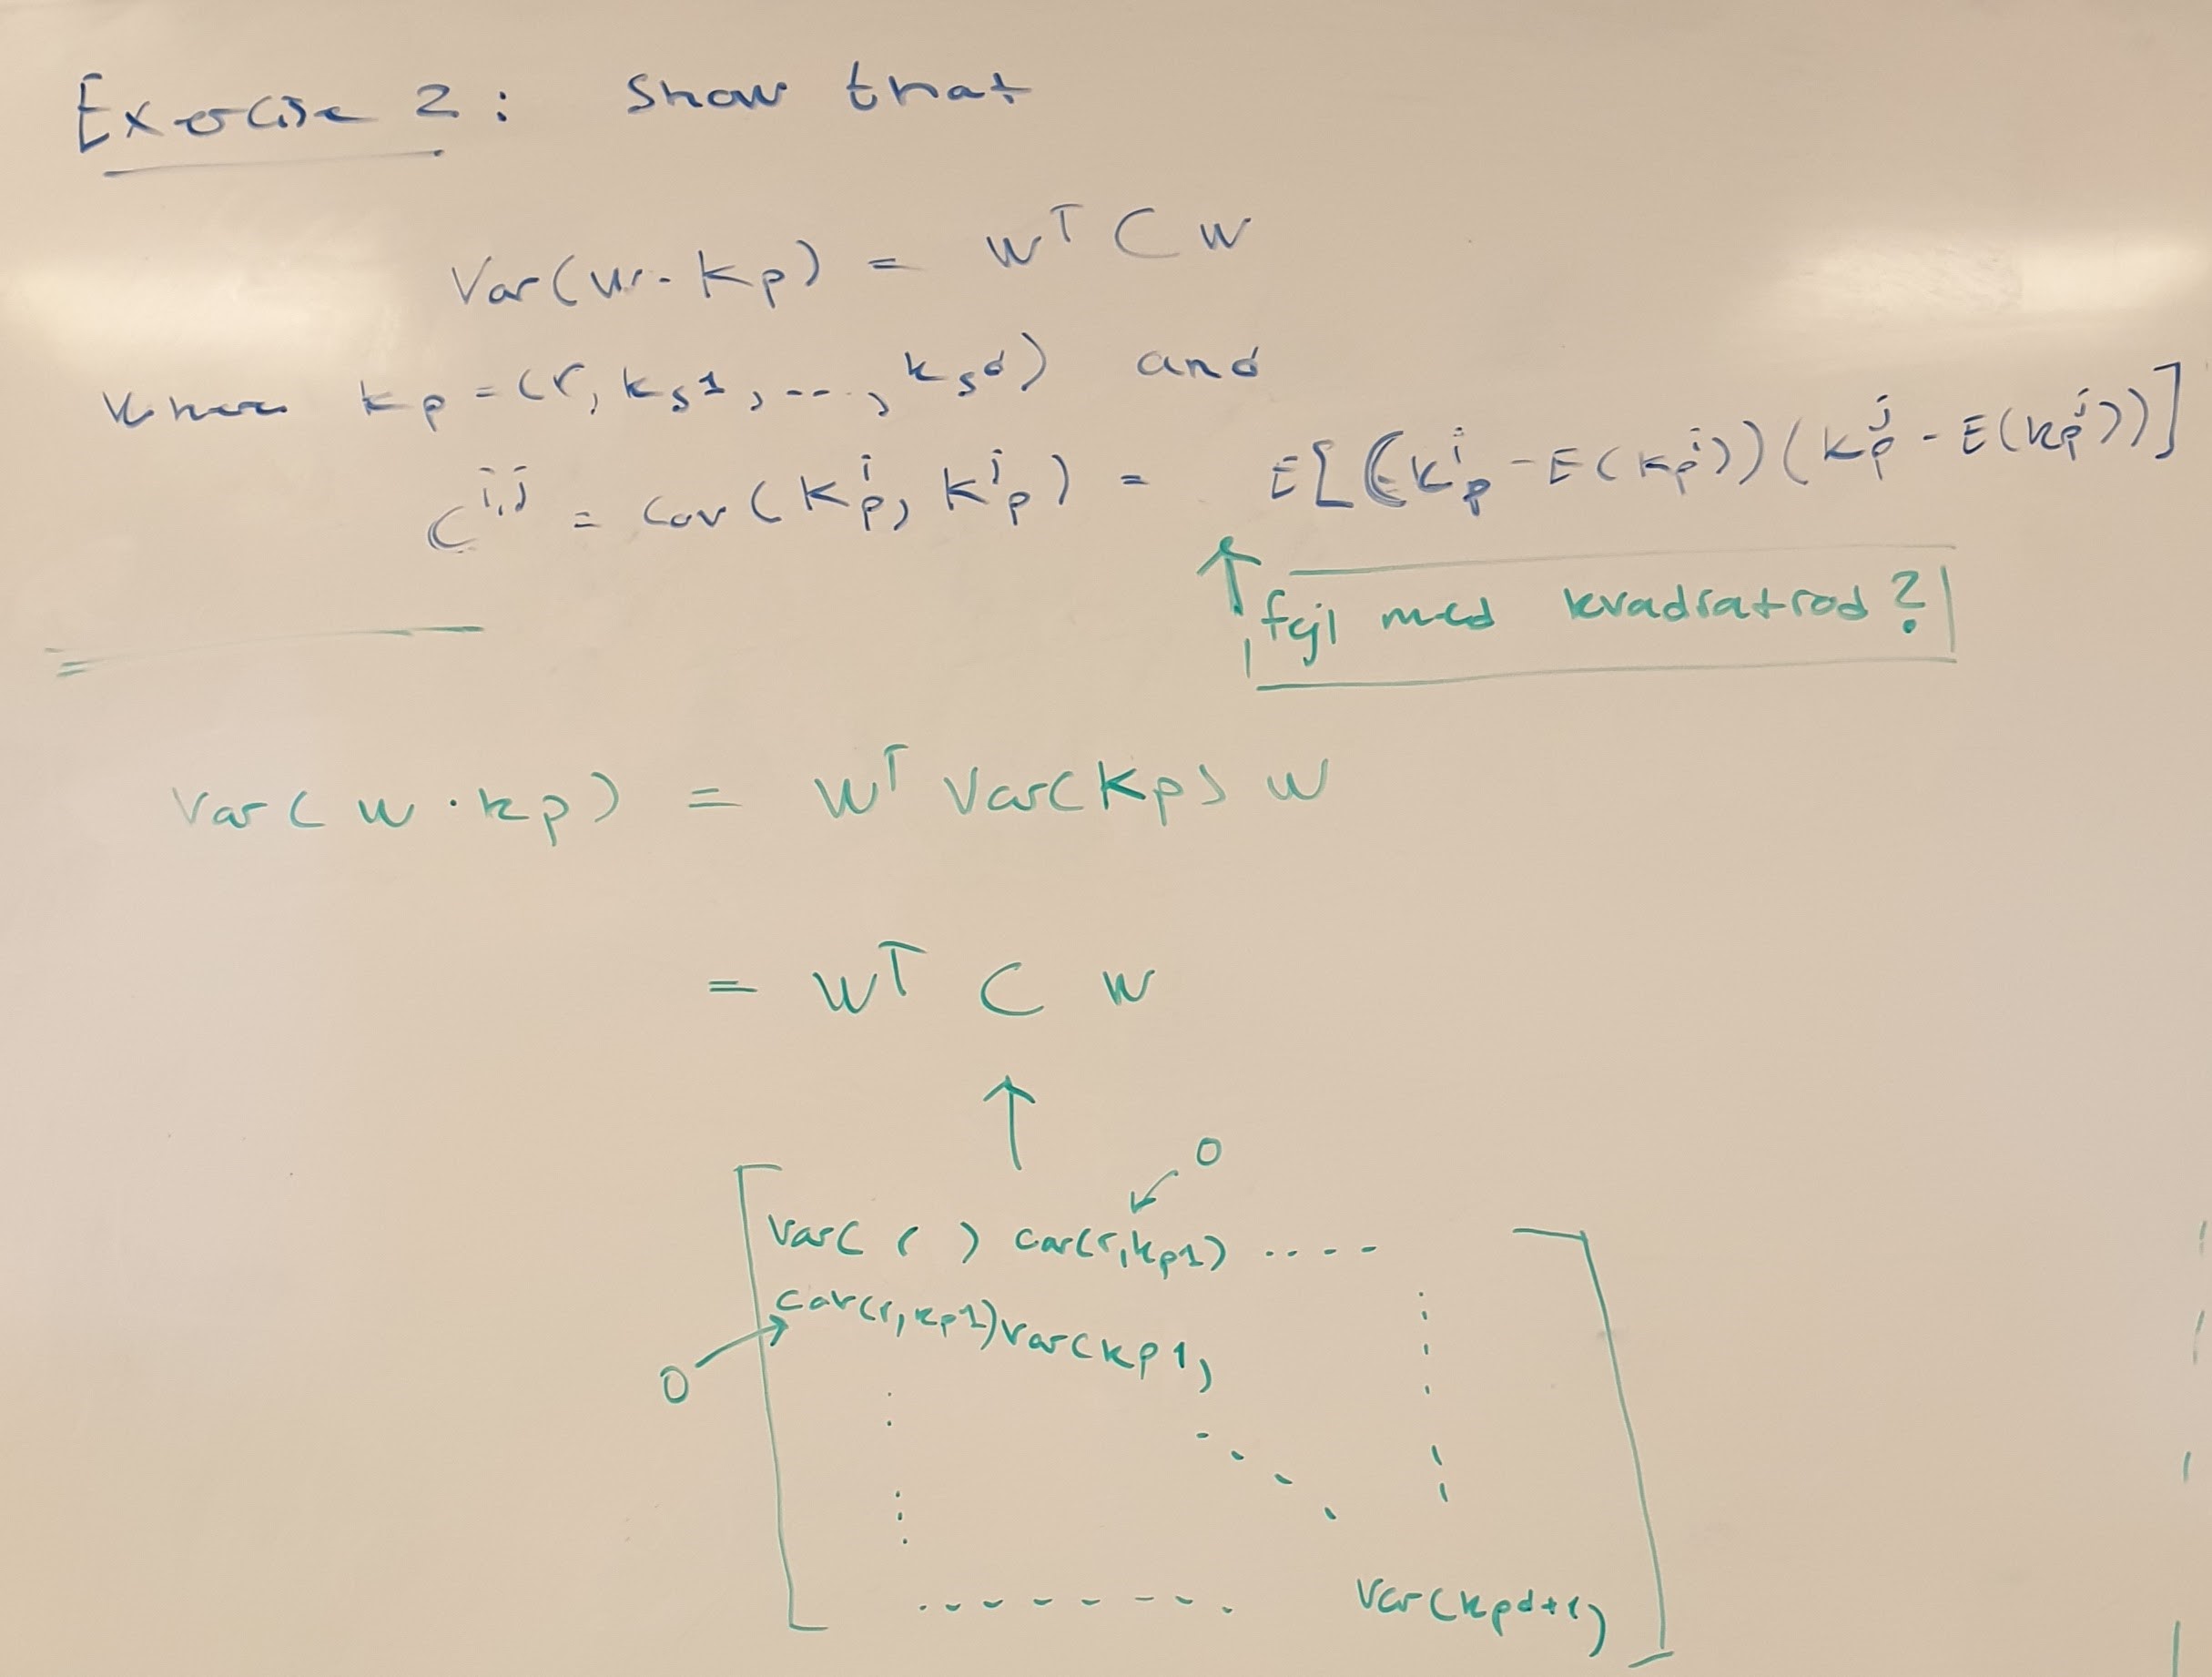 Exercise 2: Show that
Var(w·kp) = wᵀ C w
where kp = (r, ks1, ..., ksd) and
C^{i,j} = cov(k_p^i, k_p^j) = E[(k_p^i - E(k_p^i))(k_p^j - E(k_p^j))]
fejl med kvadratrod?
Var(w·kp) = wᵀ Var(kp) w
= wᵀ C w
0
Var(r) cov(r,kp1) ....
cov(r,kp1) Var(kp1)
0
Var(kpd+1)